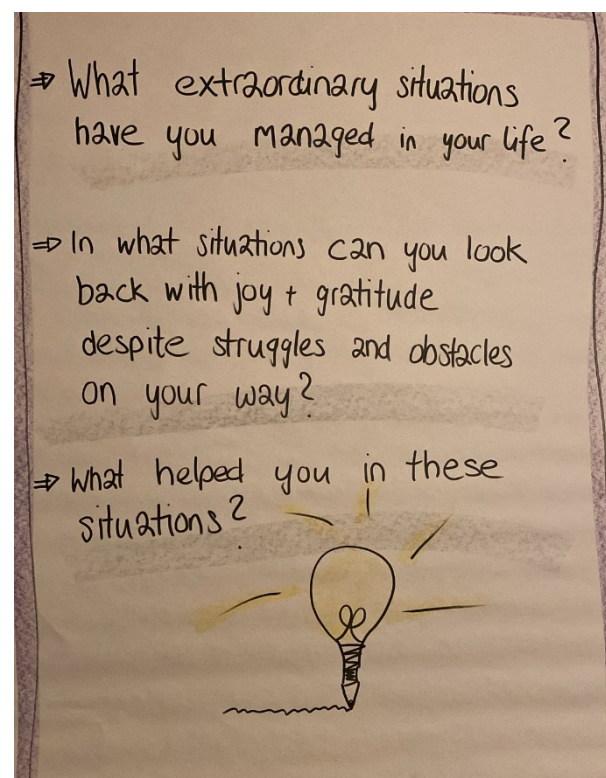 ⇒ What extraordinary situations
have you managed in your life?
⇒ In what situations can you look
back with joy + gratitude
despite struggles and obstacles
on your way?
⇒ What helped you in these
situations?